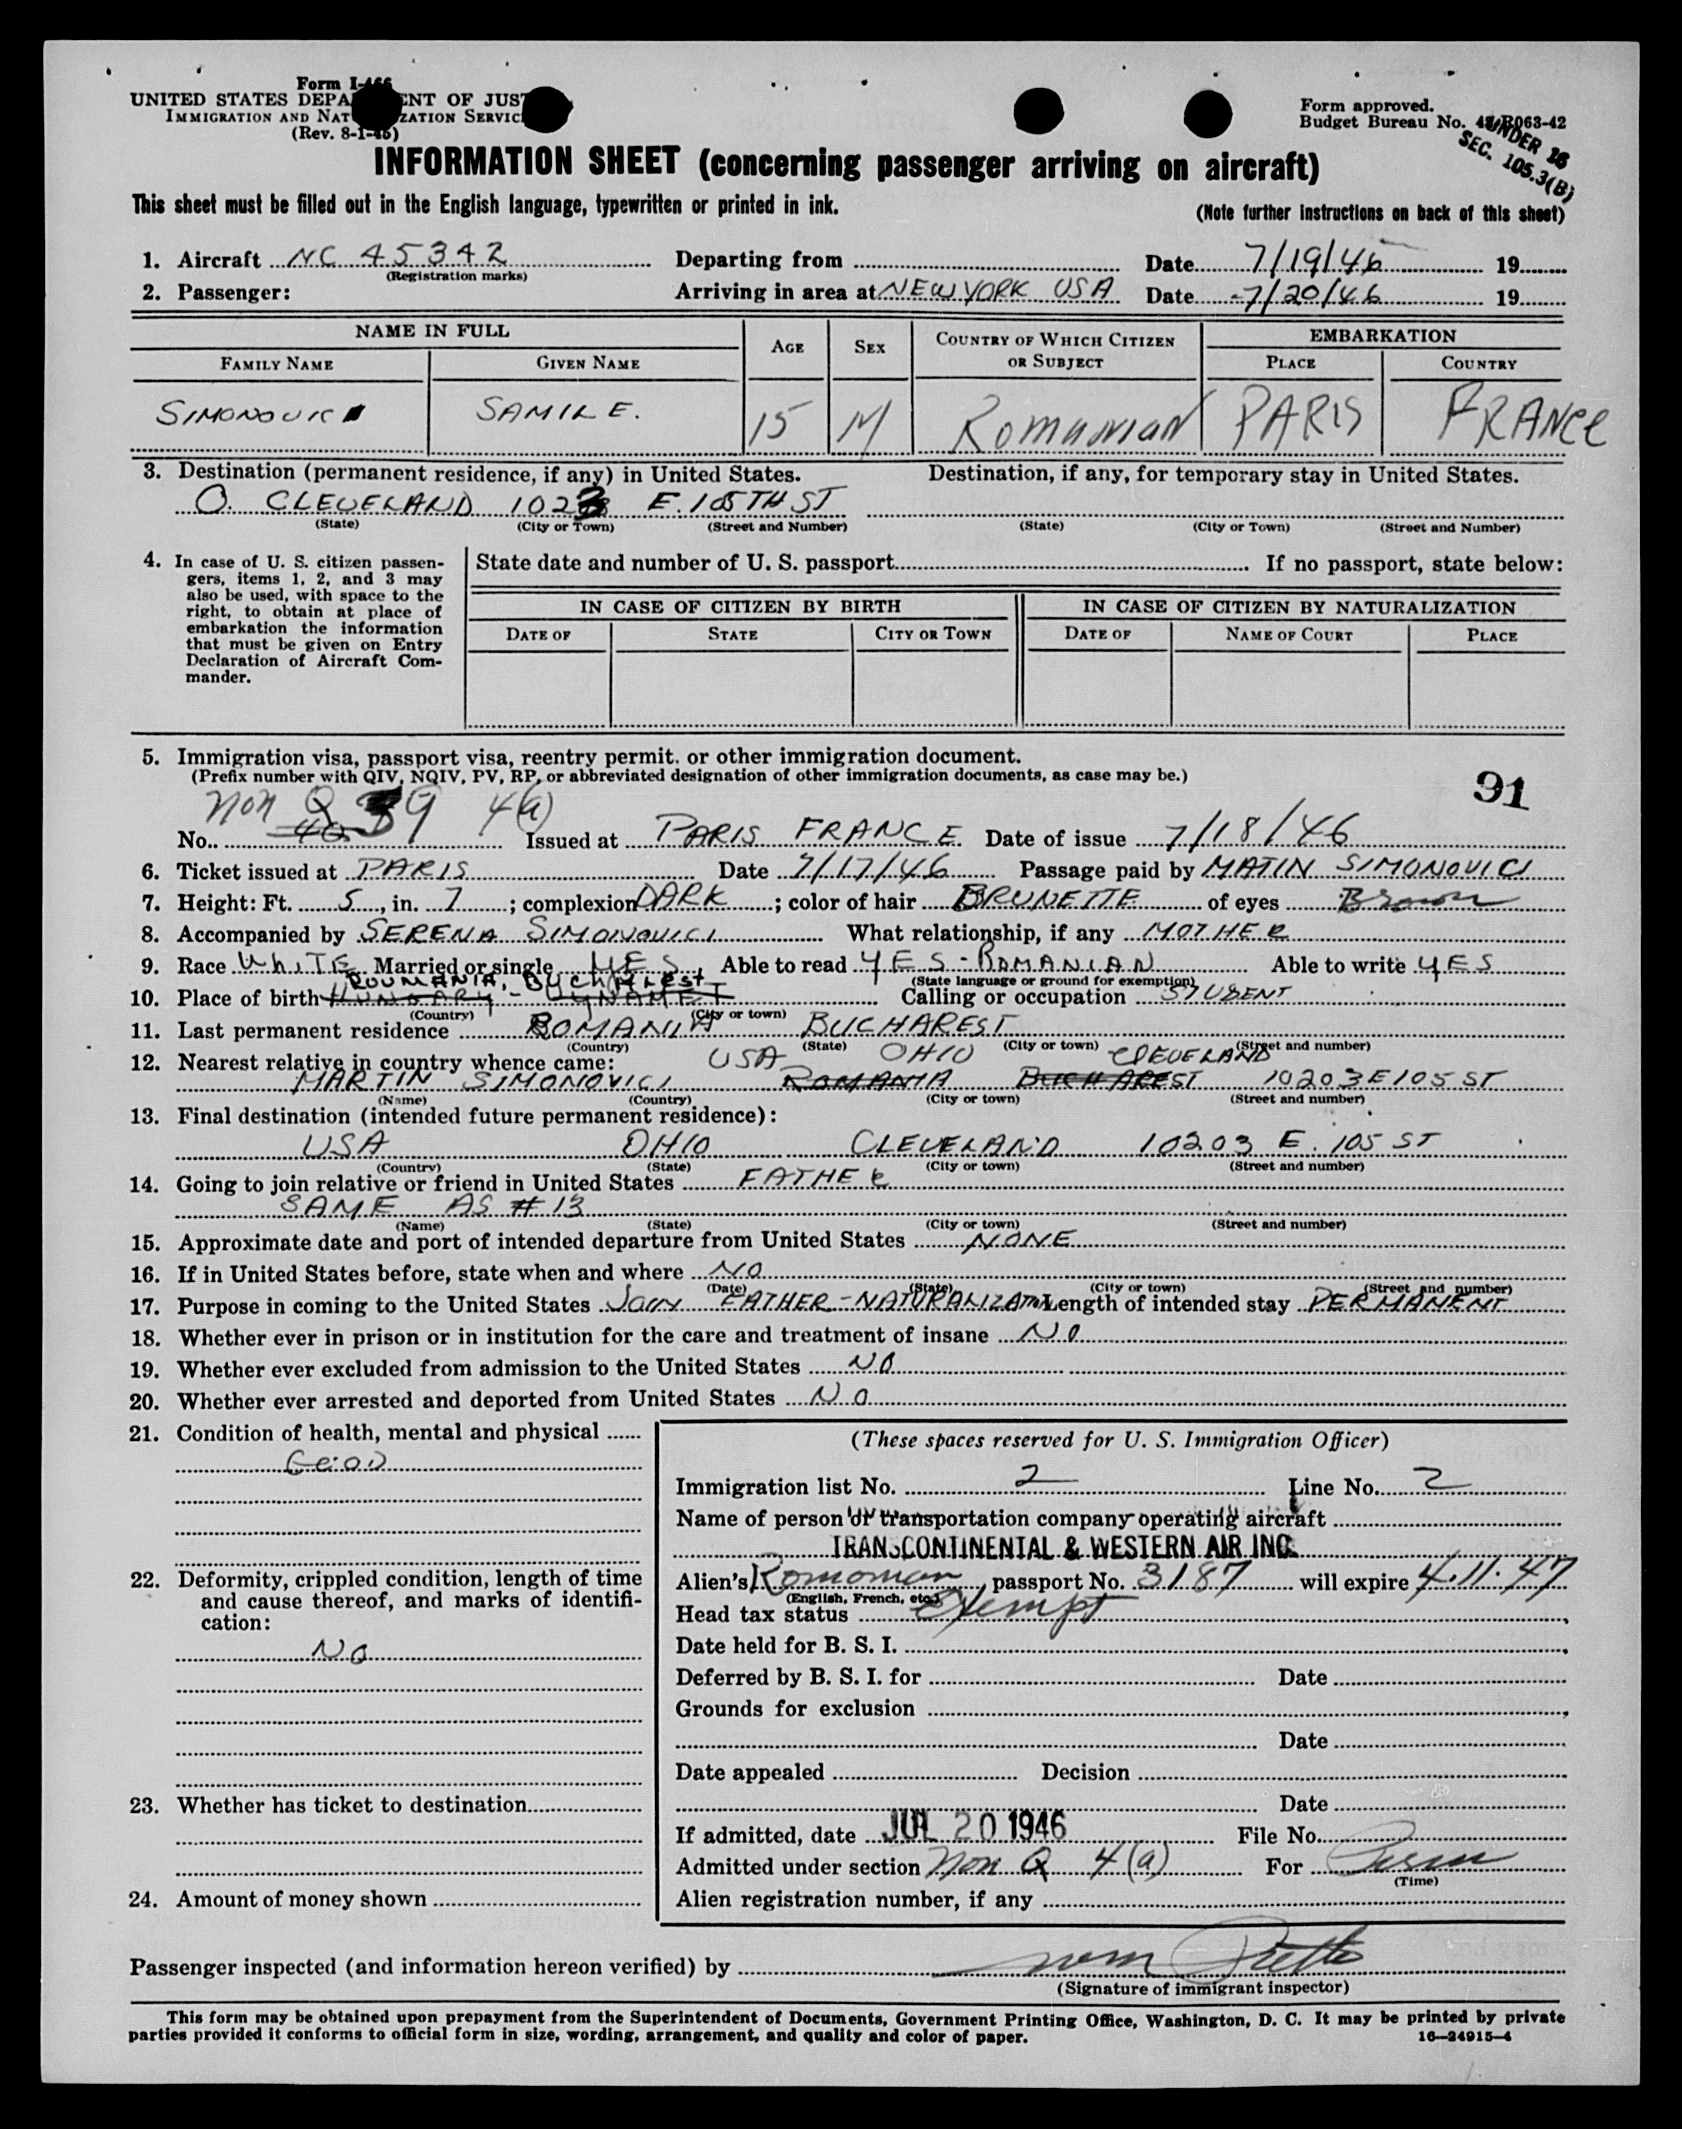 Form I-466
UNITED STATES DEPARTMENT OF JUSTICE
IMMIGRATION AND NATURALIZATION SERVICE
(Rev. 8-1-45)
Form approved.
Budget Bureau No. 43-R063-42
UNDER 16
SEC. 105.3(B)
INFORMATION SHEET (concerning passenger arriving on aircraft)
This sheet must be filled out in the English language, typewritten or printed in ink.
(Note further instructions on back of this sheet)
1. Aircraft NC 45342 Departing from Date 7/19/46 19
(Registration marks)
2. Passenger: Arriving in area at NEW YORK USA Date 7/20/46 19
NAME IN FULL AGE SEX COUNTRY OF WHICH CITIZEN OR SUBJECT EMBARKATION
FAMILY NAME GIVEN NAME PLACE COUNTRY
SIMONOVICI SAMIL E. 15 M Romanian PARIS FRANCE
3. Destination (permanent residence, if any) in United States. Destination, if any, for temporary stay in United States.
O. CLEVELAND 1023 E. 105TH ST
(State) (City or Town) (Street and Number) (State) (City or Town) (Street and Number)
4. In case of U. S. citizen passengers, items 1, 2, and 3 may also be used, with space to the right, to obtain at place of embarkation the information that must be given on Entry Declaration of Aircraft Commander.
State date and number of U. S. passport If no passport, state below:
IN CASE OF CITIZEN BY BIRTH IN CASE OF CITIZEN BY NATURALIZATION
DATE OF STATE CITY OR TOWN DATE OF NAME OF COURT PLACE
5. Immigration visa, passport visa, reentry permit. or other immigration document.
(Prefix number with QIV, NQIV, PV, RP, or abbreviated designation of other immigration documents, as case may be.)
91
non Q 39 4(a)
No. 40 Issued at PARIS FRANCE Date of issue 7/18/46
6. Ticket issued at PARIS Date 7/17/46 Passage paid by MATIN SIMONOVICI
7. Height: Ft. 5, in. 7; complexion DARK; color of hair BRUNETTE of eyes Brown
8. Accompanied by SERENA SIMONOVICI What relationship, if any MOTHER
9. Race WHITE Married or single YES Able to read YES - ROMANIAN Able to write YES
(State language or ground for exemption)
ROUMANIA, BUCHAREST
10. Place of birth HUNGARY - Calling or occupation STUDENT
(Country) (City or town)
11. Last permanent residence ROMANIA BUCHAREST
(Country) (State) (City or town) (Street and number)
12. Nearest relative in country whence came: USA OHIO CLEVELAND
MARTIN SIMONOVICI ROMANIA BUCHAREST 10203 E 105 ST
(Name) (Country) (City or town) (Street and number)
13. Final destination (intended future permanent residence):
USA OHIO CLEVELAND 10203 E. 105 ST
(Country) (State) (City or town) (Street and number)
14. Going to join relative or friend in United States FATHER
SAME AS # 13
(Name) (State) (City or town) (Street and number)
15. Approximate date and port of intended departure from United States NONE
16. If in United States before, state when and where NO
(Date) (State) (City or town) (Street and number)
17. Purpose in coming to the United States JOIN FATHER - NATURALIZATION Length of intended stay PERMANENT
18. Whether ever in prison or in institution for the care and treatment of insane NO
19. Whether ever excluded from admission to the United States NO
20. Whether ever arrested and deported from United States NO
21. Condition of health, mental and physical
GOOD
22. Deformity, crippled condition, length of time and cause thereof, and marks of identification:
NO
23. Whether has ticket to destination
24. Amount of money shown
(These spaces reserved for U. S. Immigration Officer)
Immigration list No. 2 Line No. 2
Name of person or transportation company operating aircraft
TRANSCONTINENTAL & WESTERN AIR INC.
Alien's Romanian, passport No. 3187 will expire 4.11.47
(English, French, etc.)
Head tax status Exempt
Date held for B. S. I.
Deferred by B. S. I. for Date
Grounds for exclusion
Date
Date appealed Decision
Date
If admitted, date JUL 20 1946 File No.
Admitted under section Non Q 4(a) For Perm
(Time)
Alien registration number, if any
Passenger inspected (and information hereon verified) by
(Signature of immigrant inspector)
This form may be obtained upon prepayment from the Superintendent of Documents, Government Printing Office, Washington, D. C. It may be printed by private
parties provided it conforms to official form in size, wording, arrangement, and quality and color of paper. 16—24915-4